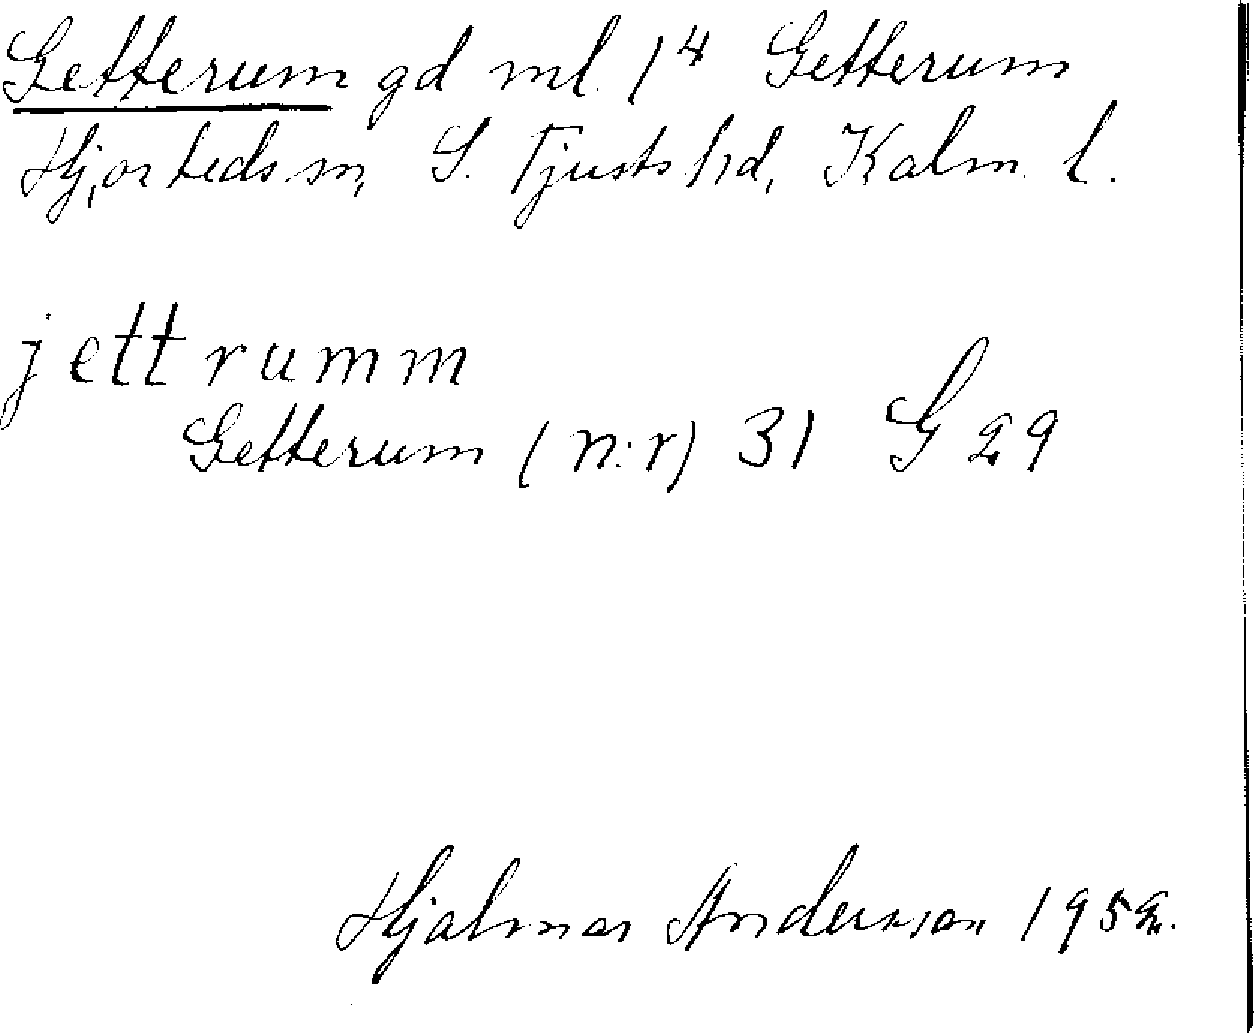 Getterum gd ml. 1⁴ Getterum
Hjorteds sn, S. Tjusts hd, Kalm. l.
jettrumm
Getterum (n:r) 31 G 29
Hjalmar Andersson 1952.